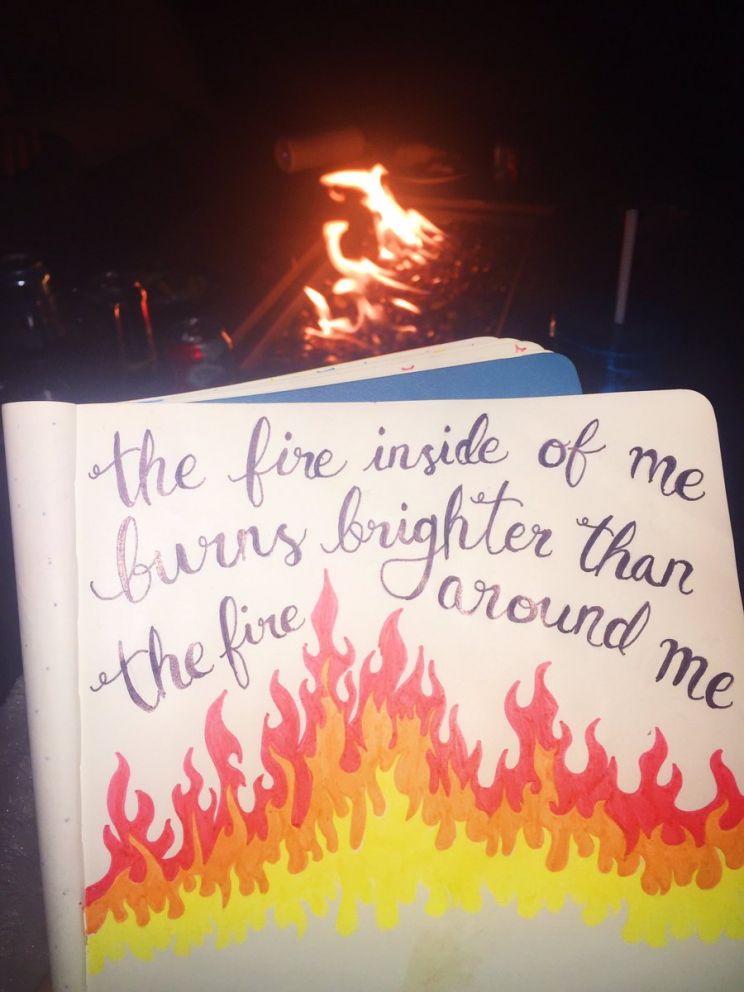 the fire inside of me
burns brighter than
the fire around me